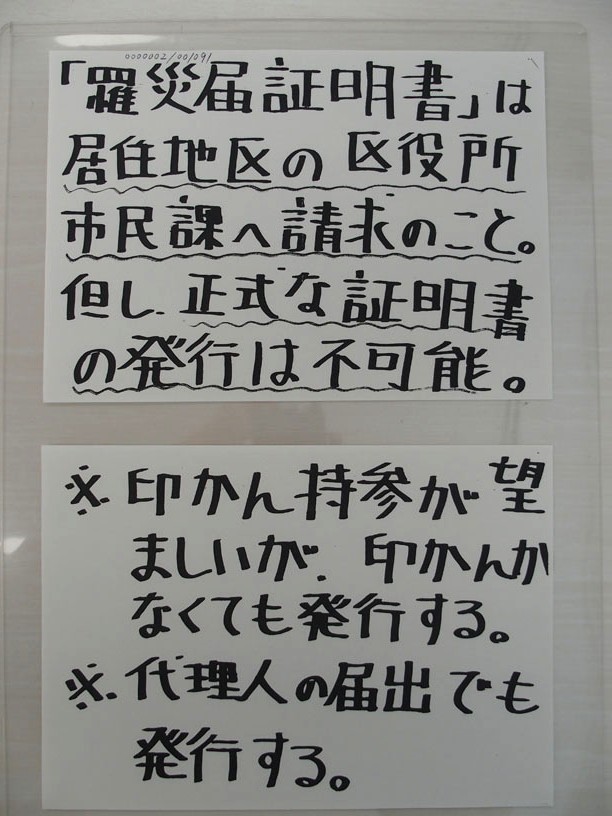 0000002/001091
「罹災届証明書」は
居住地区の区役所
市民課へ請求のこと。
但し、正式な証明書
の発行は不可能。
※、印かん持参が望
ましいが、印かんが
なくても発行する。
※、代理人の届出でも
発行する。